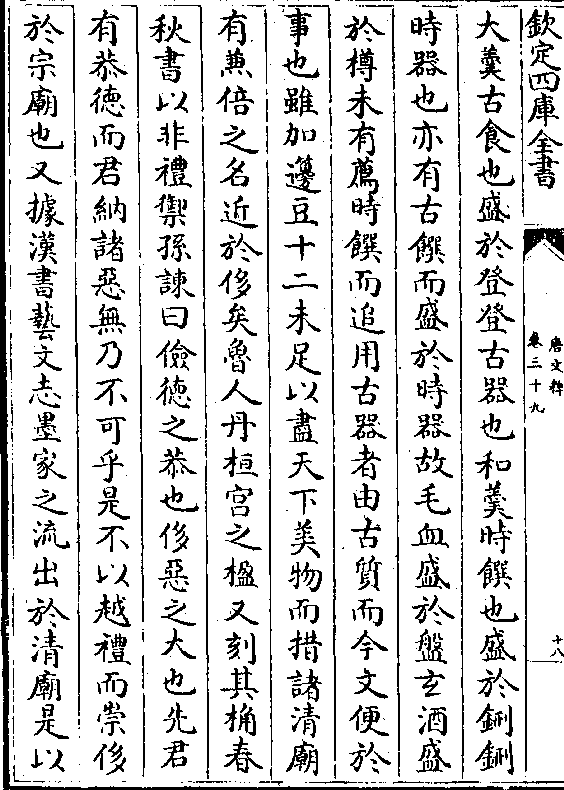 欽定四庫全書
唐文粹
卷三十九
十八
大羹古食也盛於登登古器也和羹時饌也盛於鉶鉶
時器也亦有古饌而盛於時器故毛血盛於盤玄酒盛
於樽未有薦時饌而追用古器者由古質而今文便於
事也雖加籩豆十二未足以盡天下美物而措諸清廟
有兼倍之名近於侈矣魯人丹桓宮之楹又刻其桷春
秋書以非禮禦孫諫曰儉德之恭也侈惡之大也先君
有恭德而君納諸惡無乃不可乎是不以越禮而崇侈
於宗廟也又據漢書藝文志墨家之流出於清廟是以